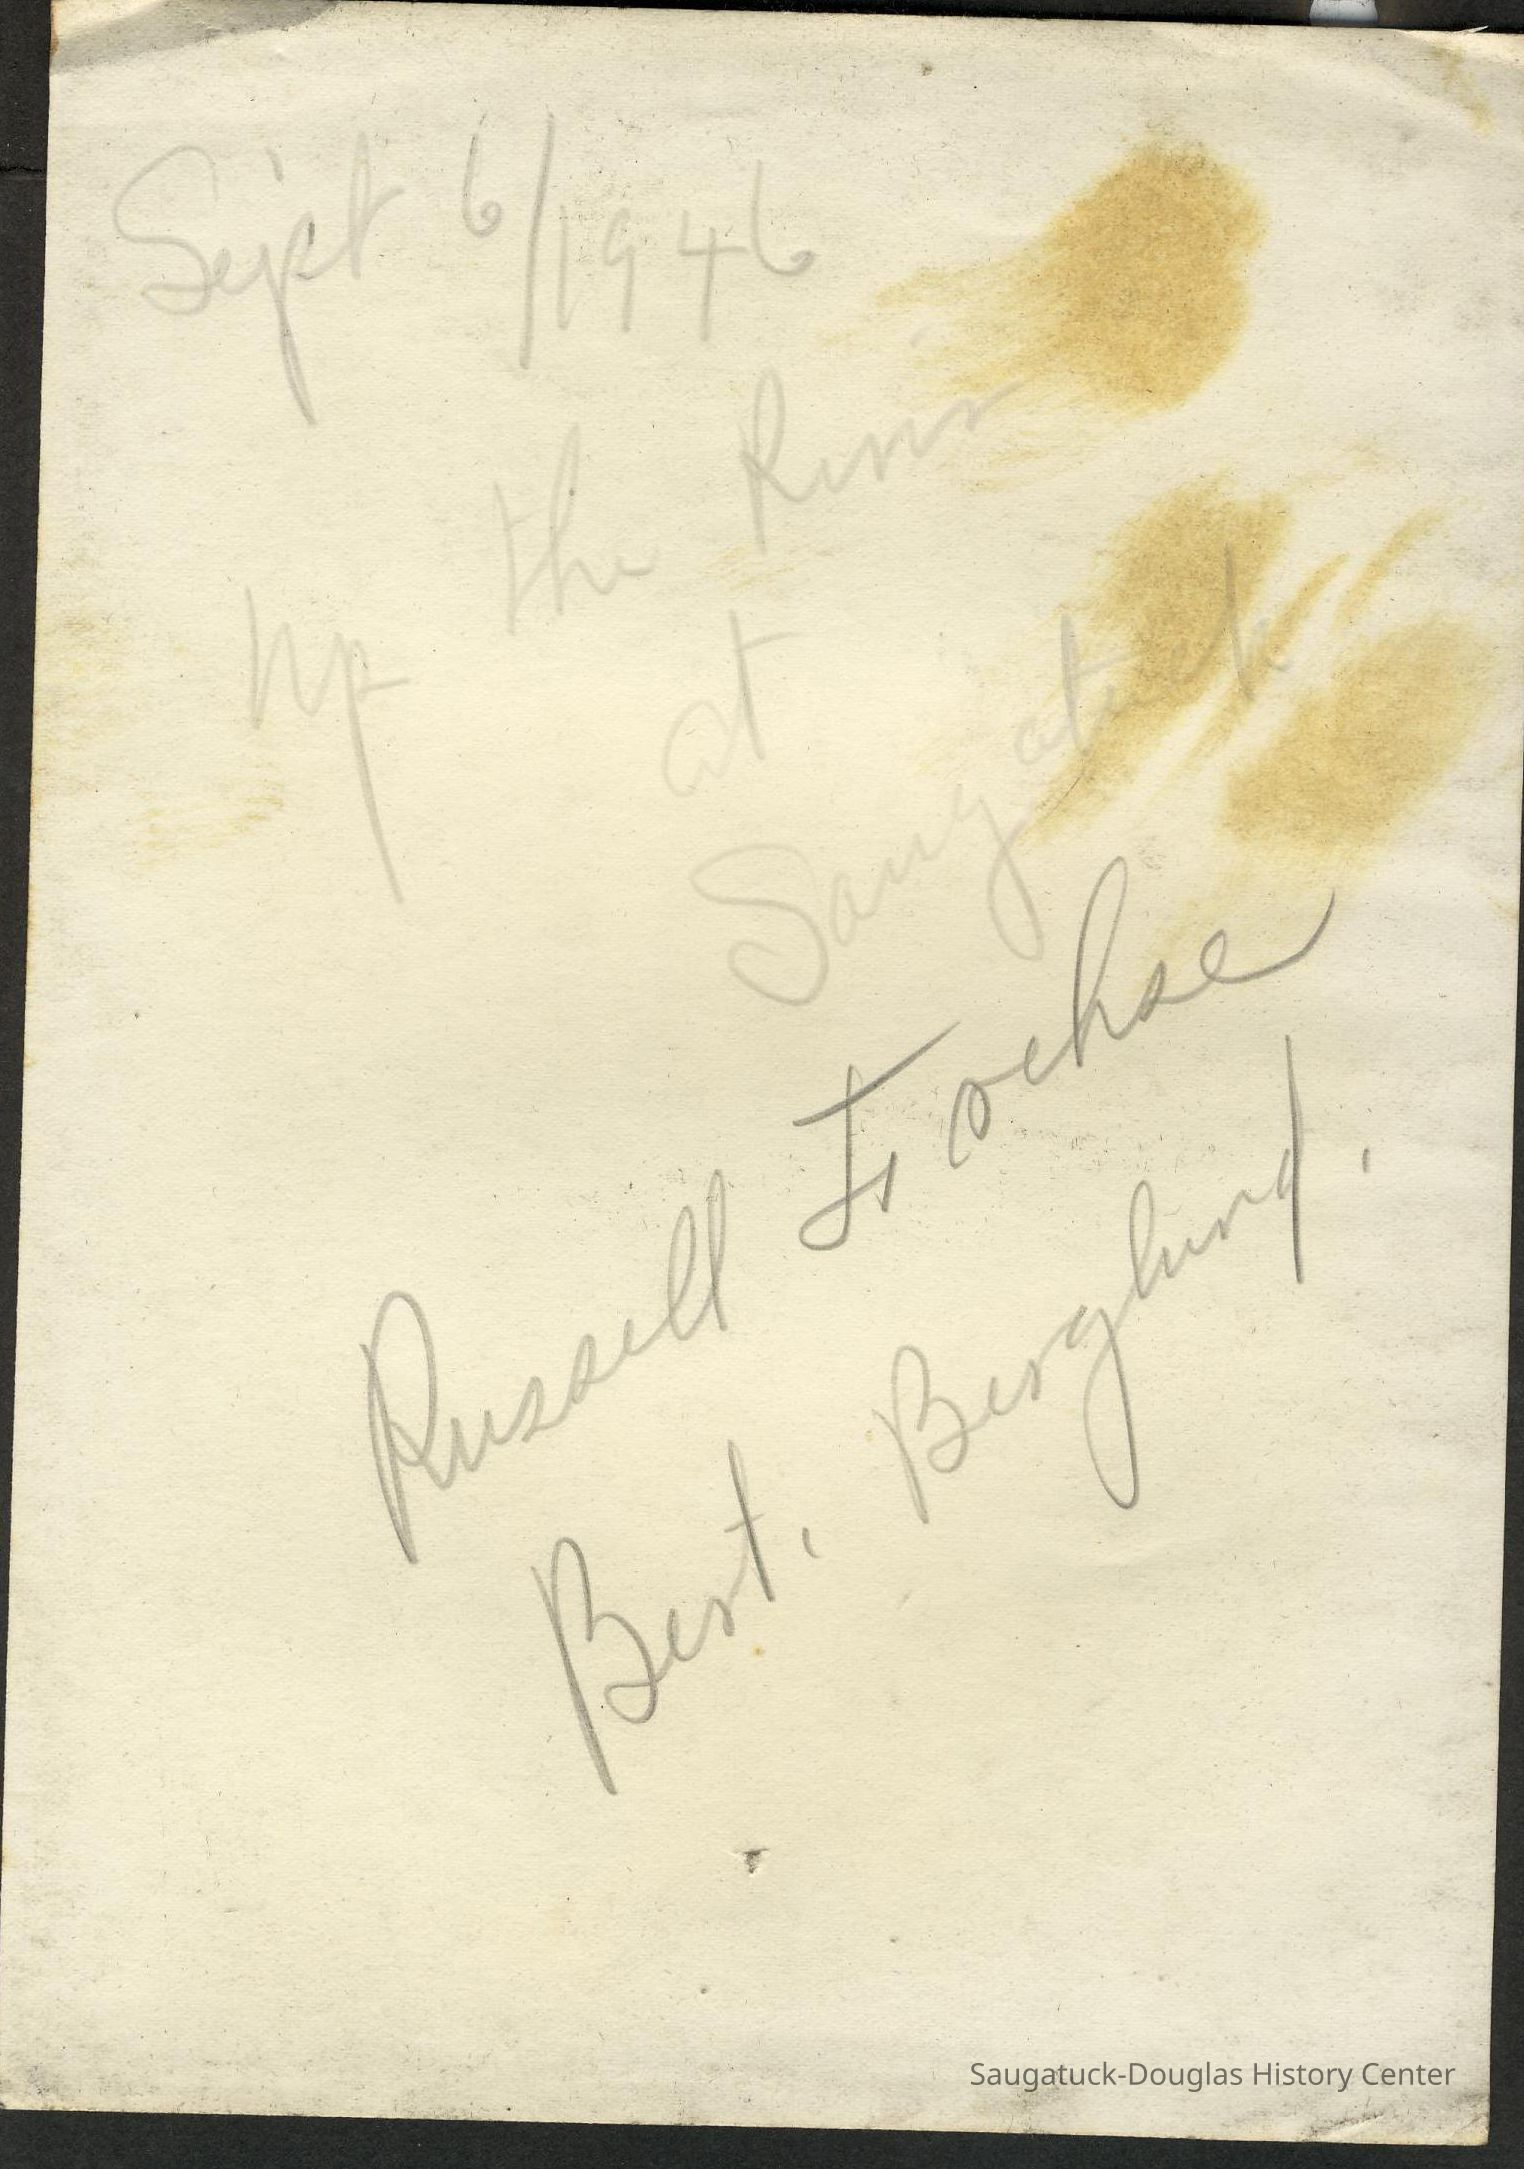 Sept 6/1946
up the River
at
Saugatuck
Russell
Bert. Berglund.
Saugatuck-Douglas History Center